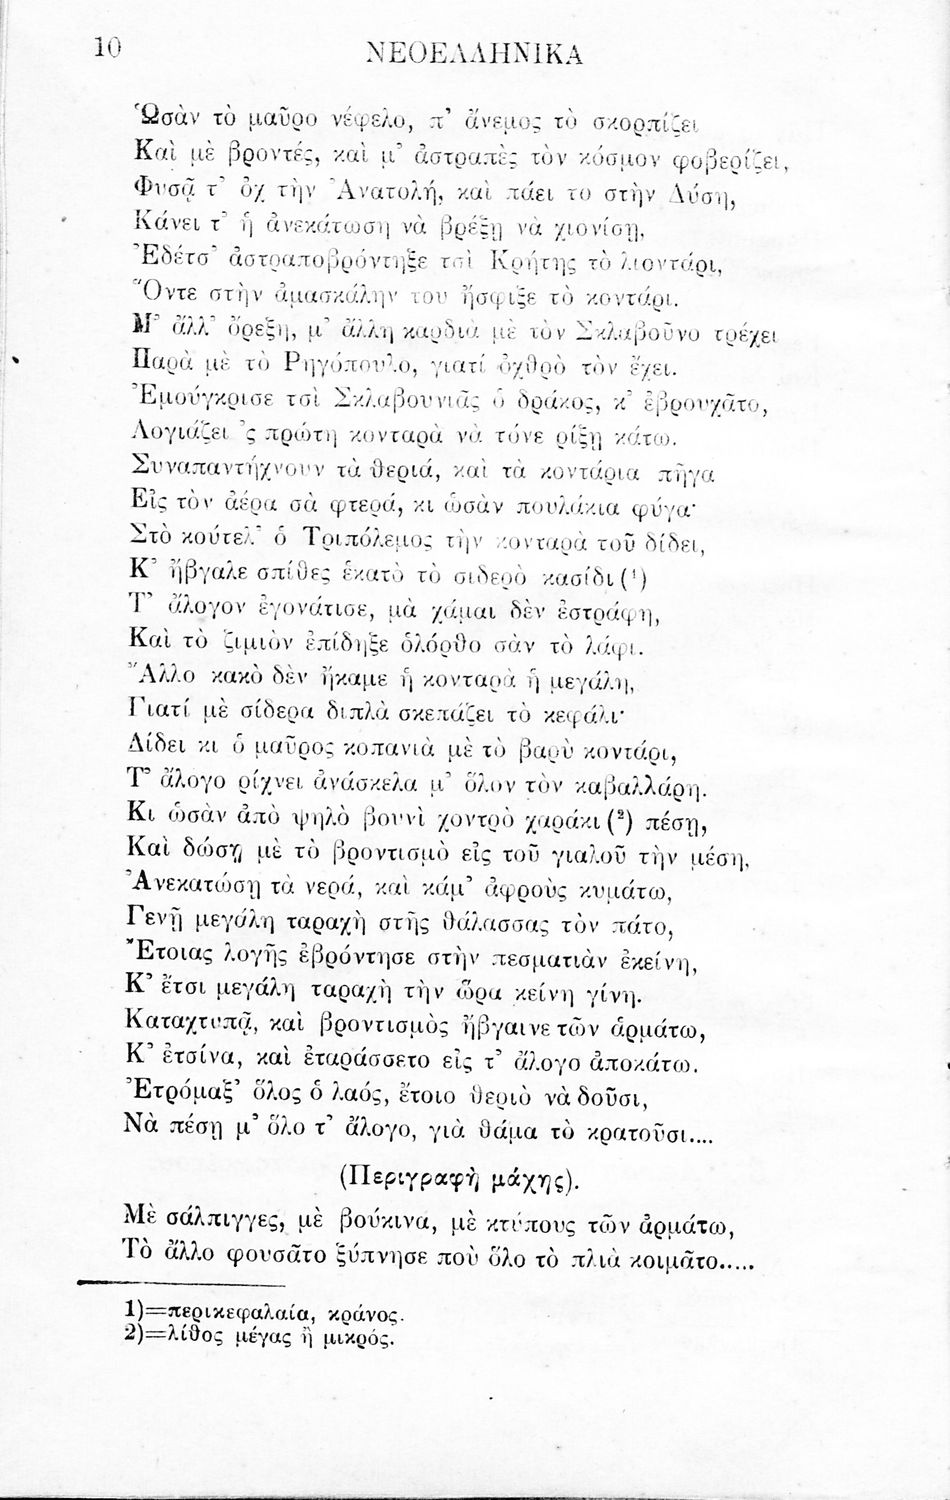 10
ΝΕΟΕΛΛΗΝΙΚΑ
Ὡσὰν τὸ μαῦρο νέφελο, π’ ἄνεμος τὸ σκορπίζει
Καὶ μὲ βροντές, καὶ μ’ ἀστραπὲς τὸν κόσμον φοβερίζει,
Φυσᾷ τ’ ὀχ τὴν Ἀνατολή, καὶ πάει το στὴν Δύση,
Κάνει τ’ ἡ ἀνεκάτωση νὰ βρέξῃ νὰ χιονίσῃ,
Ἐδέτσ’ ἀστραποβρόντηξε τσὶ Κρήτης τὸ λιοντάρι,
Ὅντε στὴν ἀμασκάλην του ἤσφιξε τὸ κοντάρι.
Μ’ ἄλλ’ ὄρεξη, μ’ ἄλλη καρδιὰ μὲ τὸν Σκλαβοῦνο τρέχει
Παρὰ μὲ τὸ Ρηγόπουλο, γιατί ὀχθρὸ τὸν ἔχει.
Ἐμούγκρισε τσὶ Σκλαβουνιᾶς ὁ δράκος, κ’ ἐβρουχᾶτο,
Λογιάζει ’ς πρώτη κονταρὰ νὰ τόνε ρίξῃ κάτω.
Συναπαντήχνουν τὰ θεριά, καὶ τὰ κοντάρια πῆγα
Εἰς τὸν ἀέρα σὰ φτερά, κι ὡσὰν πουλάκια φύγα·
Στὸ κούτελ’ ὁ Τριπόλεμος τὴν κονταρὰ τοῦ δίδει,
Κ’ ἤβγαλε σπίθες ἑκατὸ τὸ σιδερὸ κασίδι (¹)
Τ’ ἄλογον ἐγονάτισε, μὰ χάμαι δὲν ἐστράφη,
Καὶ τὸ ζιμιὸν ἐπίδηξε ὁλόρθο σὰν τὸ λάφι.
Ἄλλο κακὸ δὲν ἤκαμε ἡ κονταρὰ ἡ μεγάλη,
Γιατί μὲ σίδερα διπλὰ σκεπάζει τὸ κεφάλι·
Δίδει κι ὁ μαῦρος κοπανιὰ μὲ τὸ βαρὺ κοντάρι,
Τ’ ἄλογο ρίχνει ἀνάσκελα μ’ ὅλον τὸν καβαλλάρη.
Κι ὡσὰν ἀπὸ ψηλὸ βουνὶ χοντρὸ χαράκι (²) πέσῃ,
Καὶ δώσῃ μὲ τὸ βροντισμὸ εἰς τοῦ γιαλοῦ τὴν μέση,
Ἀνεκατώσῃ τὰ νερά, καὶ κάμ’ ἀφροὺς κυμάτω,
Γενῇ μεγάλη ταραχὴ στῆς θάλασσας τὸν πάτο,
Ἔτοιας λογῆς ἐβρόντησε στὴν πεσματιὰν ἐκείνη,
Κ’ ἔτσι μεγάλη ταραχὴ τὴν ὥρα κείνη γίνη.
Καταχτυπᾷ, καὶ βροντισμὸς ἤβγαινε τῶν ἁρμάτω,
Κ’ ἐτσίνα, καὶ ἐταράσσετο εἰς τ’ ἄλογο ἀποκάτω.
Ἐτρόμαξ’ ὅλος ὁ λαός, ἔτοιο θεριὸ νὰ δοῦσι,
Νὰ πέσῃ μ’ ὅλο τ’ ἄλογο, γιὰ θάμα τὸ κρατοῦσι....
(Περιγραφὴ μάχης).
Μὲ σάλπιγγες, μὲ βούκινα, μὲ κτύπους τῶν ἀρμάτω,
Τὸ ἄλλο φουσᾶτο ξύπνησε ποὺ ὅλο τὸ πλιὰ κοιμᾶτο.....
1)=περικεφαλαία, κράνος.
2)=λίθος μέγας ἢ μικρός.